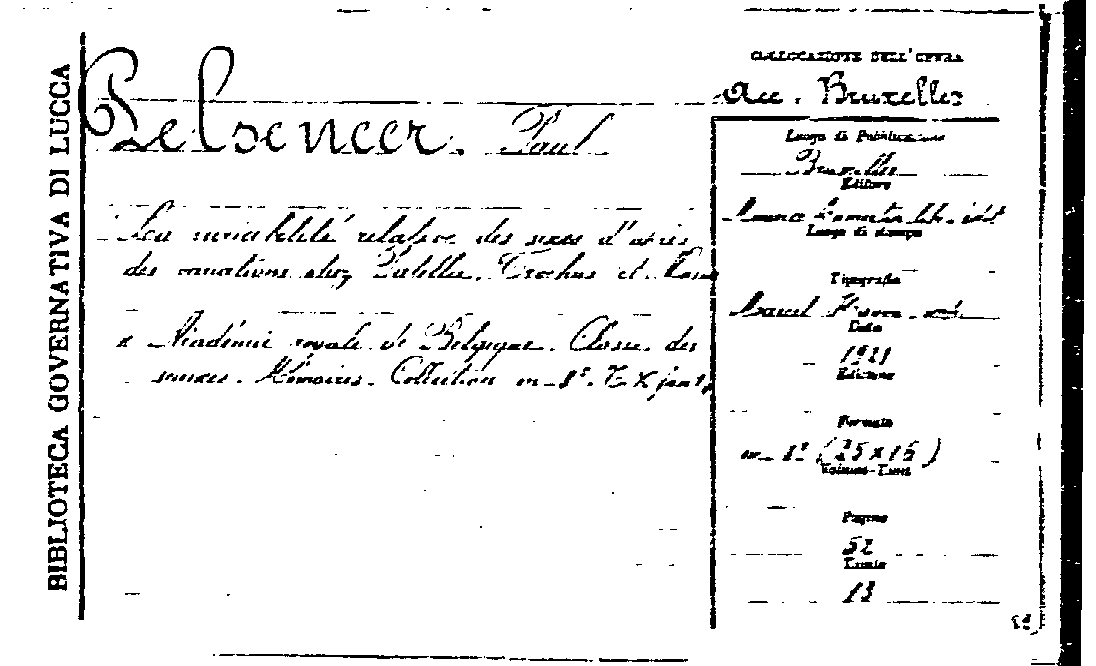 BIBLIOTECA GOVERNATIVA DI LUCCA
Pelseneer. Paul
La variabilité relative des sexes d'après
des variations chez Patella, Trochus et
Académie royale de Belgique. Classe des
sciences. Mémoires. Collection in-8°. T X
COLLOCAZIONE DELL'OPERA
Acc. Bruxelles
Luogo di Pubblicazione
Bruxelles
Editore
Maurice Lamertin
Luogo di stampa
Tipografia
Marcel
Data
1921
Edizione
Formato
in-8° (25×16)
Volume-Tomi
Pagine
52
Tavole
13